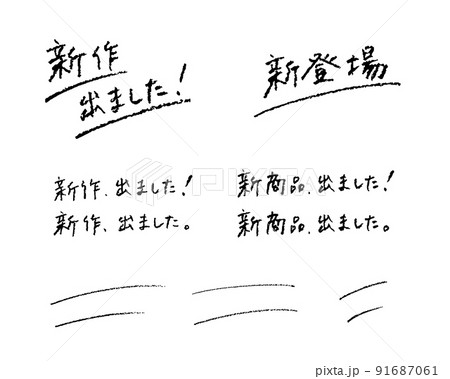 新作
出ました!
新登場
新作、出ました!
新作、出ました。
新商品、出ました!
新商品、出ました。
PIXTA
pixta.jp - 91687061